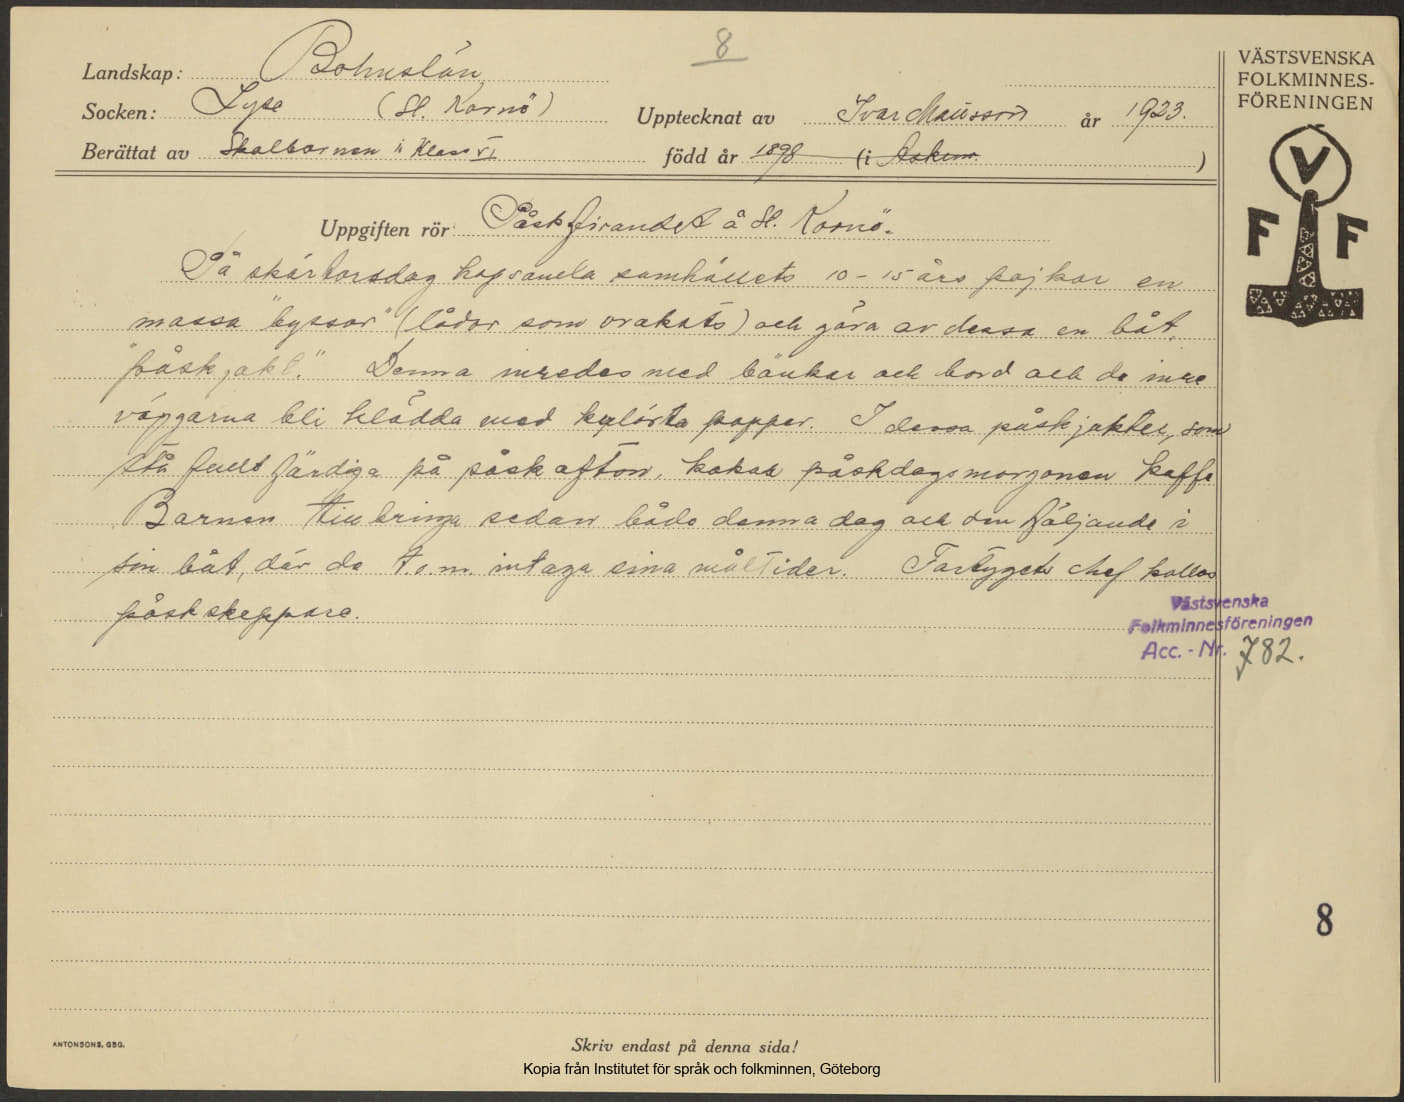 8
Landskap: Bohuslän
Socken: Lyse (St. Kornö) Upptecknat av Ivar Mattsson år 1923.
Berättat av Skolbarnen i Klass VI född år 1898 (i Askum )
Uppgiften rör: Påskfirandet å St. Kornö.
På skärtorsdag hopsamla samhällets 10-15 års pojkar en
massa "byssor" (lådor som vrakats) och göra av dessa en båt,
"påskjakt." Denna inredes med bänkar och bord och de inre
väggarna bli klädda med kulörta papper. I dessa påskjakter, som
stå fullt färdiga på påskafton, kokas påskdagsmorgonen kaffe
Barnen tillbringa sedan både denna dag och den följande i
sin båt, där de t.o.m. intaga sina måltider. Fartygets chef kallas
påskskeppare.
VÄSTSVENSKA
FOLKMINNES-
FÖRENINGEN
V
F F
Västsvenska
Folkminnesföreningen
Acc. - Nr. 782.
8
ANTONSONS, GBG.
Skriv endast på denna sida!
Kopia från Institutet för språk och folkminnen, Göteborg